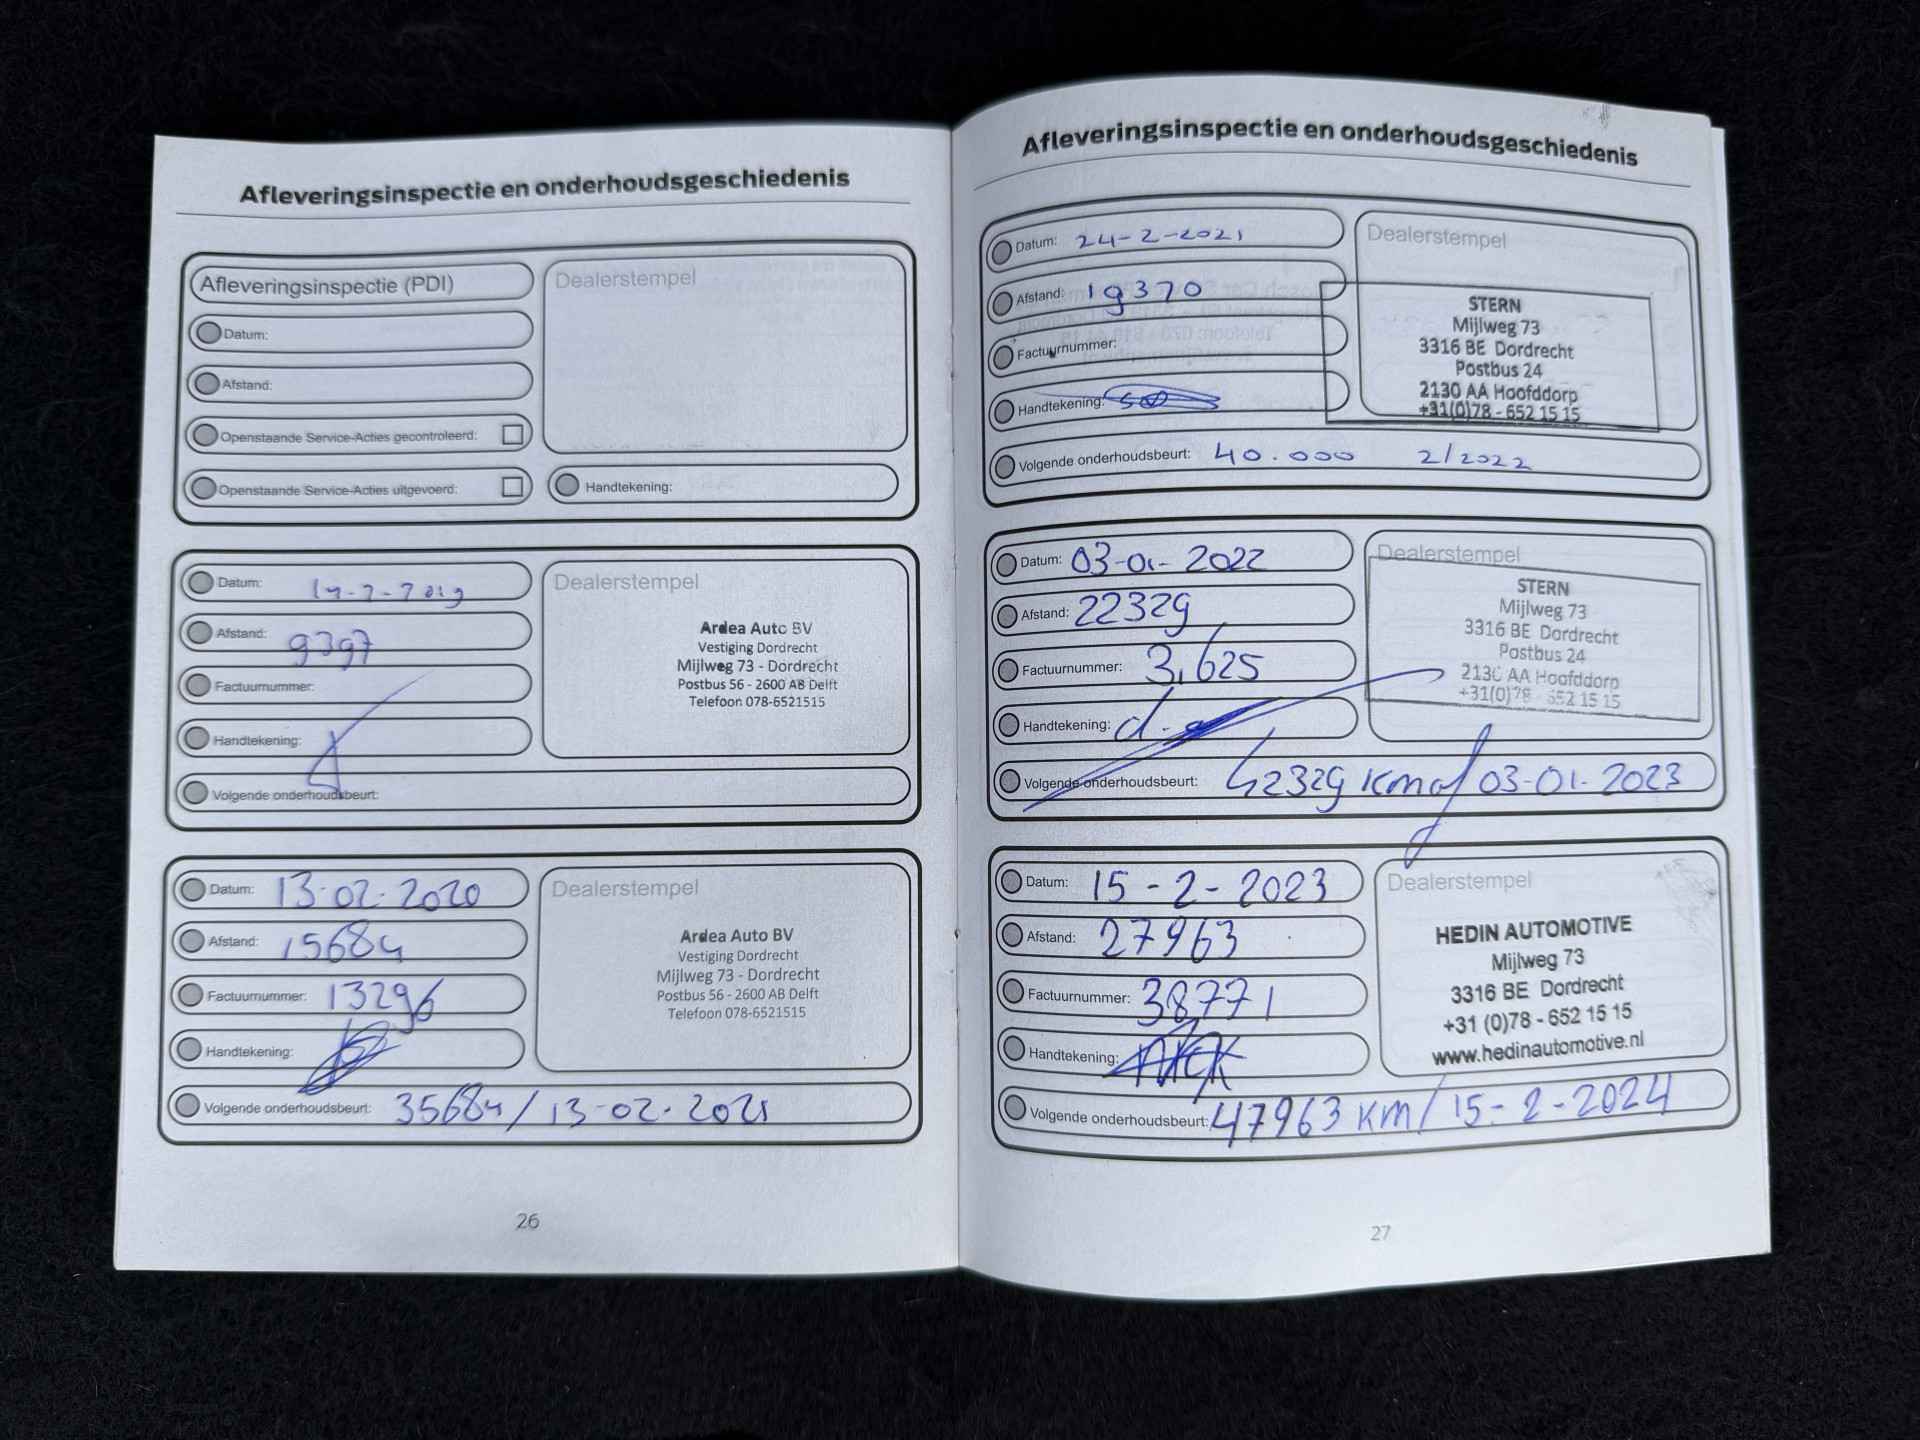 Afleveringsinspectie en onderhoudsgeschiedenis
Afleveringsinspectie (PDI)
Dealerstempel
Datum:
Afstand:
Openstaande Service-Acties gecontroleerd:
Openstaande Service-Acties uitgevoerd:
Handtekening:
Datum:
Dealerstempel
Afstand: 9397
Factuurnummer:
Handtekening:
Volgende onderhoudsbeurt:
Ardea Auto BV
Vestiging Dordrecht
Mijlweg 73 - Dordrecht
Postbus 56 - 2600 AB Delft
Telefoon 078-6521515
Datum: 13-02-2020
Dealerstempel
Afstand: 15684
Factuurnummer: 13296
Handtekening:
Volgende onderhoudsbeurt: 35684 / 13-02-2021
Ardea Auto BV
Vestiging Dordrecht
Mijlweg 73 - Dordrecht
Postbus 56 - 2600 AB Delft
Telefoon 078-6521515
26
Afleveringsinspectie en onderhoudsgeschiedenis
Datum: 24-2-2021
Dealerstempel
Afstand: 19370
Factuurnummer:
Handtekening:
Volgende onderhoudsbeurt: 40.000 2/2022
STERN
Mijlweg 73
3316 BE Dordrecht
Postbus 24
2130 AA Hoofddorp
+31(0)78 - 652 15 15
Datum: 03-01-2022
Dealerstempel
Afstand: 22329
Factuurnummer: 3,625
Handtekening:
Volgende onderhoudsbeurt: 42329 km of 03-01-2023
STERN
Mijlweg 73
3316 BE Dordrecht
Postbus 24
2130 AA Hoofddorp
+31(0)78 - 652 15 15
Datum: 15-2-2023
Dealerstempel
Afstand: 27963
Factuurnummer: 38771
Handtekening:
Volgende onderhoudsbeurt: 47963 KM / 15-2-2024
HEDIN AUTOMOTIVE
Mijlweg 73
3316 BE Dordrecht
+31 (0)78 - 652 15 15
www.hedinautomotive.nl
27